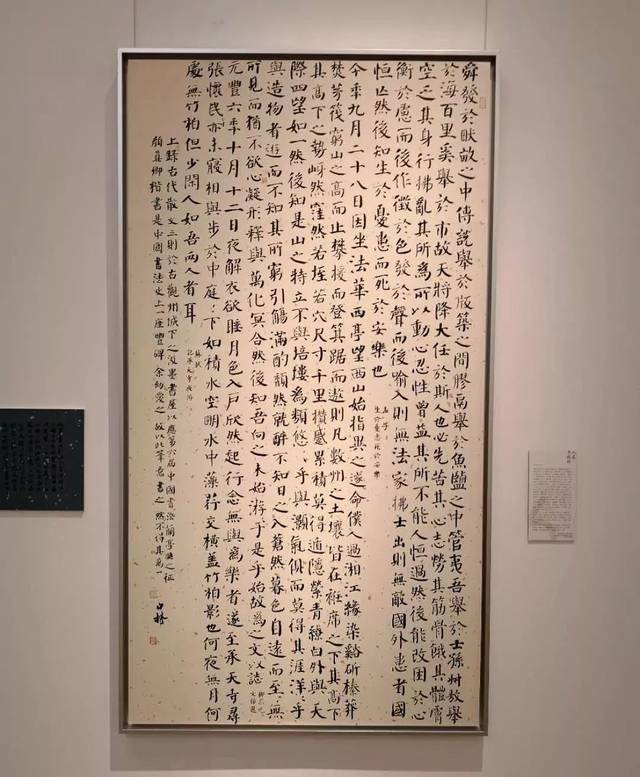 舜發於畎畝之中傅說舉於版築之間膠鬲舉於魚鹽之中管夷吾舉於士孫叔敖舉
於海百里奚舉於市故天將降大任於斯人也必先苦其心志勞其筋骨餓其體膚
空乏其身行拂亂其所為所以動心忍性曾益其所不能人恒過然後能改困於心
衡於慮而後作徵於色發於聲而後喻入則無法家拂士出則無敵國外患者國
恒亡然後知生於憂患而死於安樂也
孟子
生於憂患死於安樂
今年九月二十八日因坐法華西亭望西山始指異之遂命僕人過湘江緣染谿斫榛莽
焚茅筏窮山之高而止攀援而登箕踞而遨則凡數州之土壤皆在衽席之下其高下
其高下之勢岈然窪然若垤若穴尺寸千里攢蹙累積莫得遁隱縈青繚白外與天
際四望如一然後知是山之特立不與培塿為類悠悠乎與灝氣俱而莫得其涯洋洋乎
與造物者遊而不知其所窮引觴滿酌頹然就醉不知日之入蒼然暮色自遠而至至無
所見而猶不欲心凝形釋與萬化冥合然後知吾向之未始游乎是乎始故為之文以誌
元豐六年十月十二日夜解衣欲睡月色入戶欣然起行念無與為樂者遂至承天寺尋
張懷民亦未寢相與步於中庭庭下如積水空明水中藻荇交橫蓋竹柏影也何夜無月何
處無竹柏但少閑人如吾兩人者耳
蘇軾
記承天寺夜游
上錄古代散文三則於古觀州城下之汲墨書屋以應第六屆中國書法蘭亭獎之征
顏真卿楷書是中國書法史上一座豐碑余幼愛之故以此筆意書之然不得其萬一